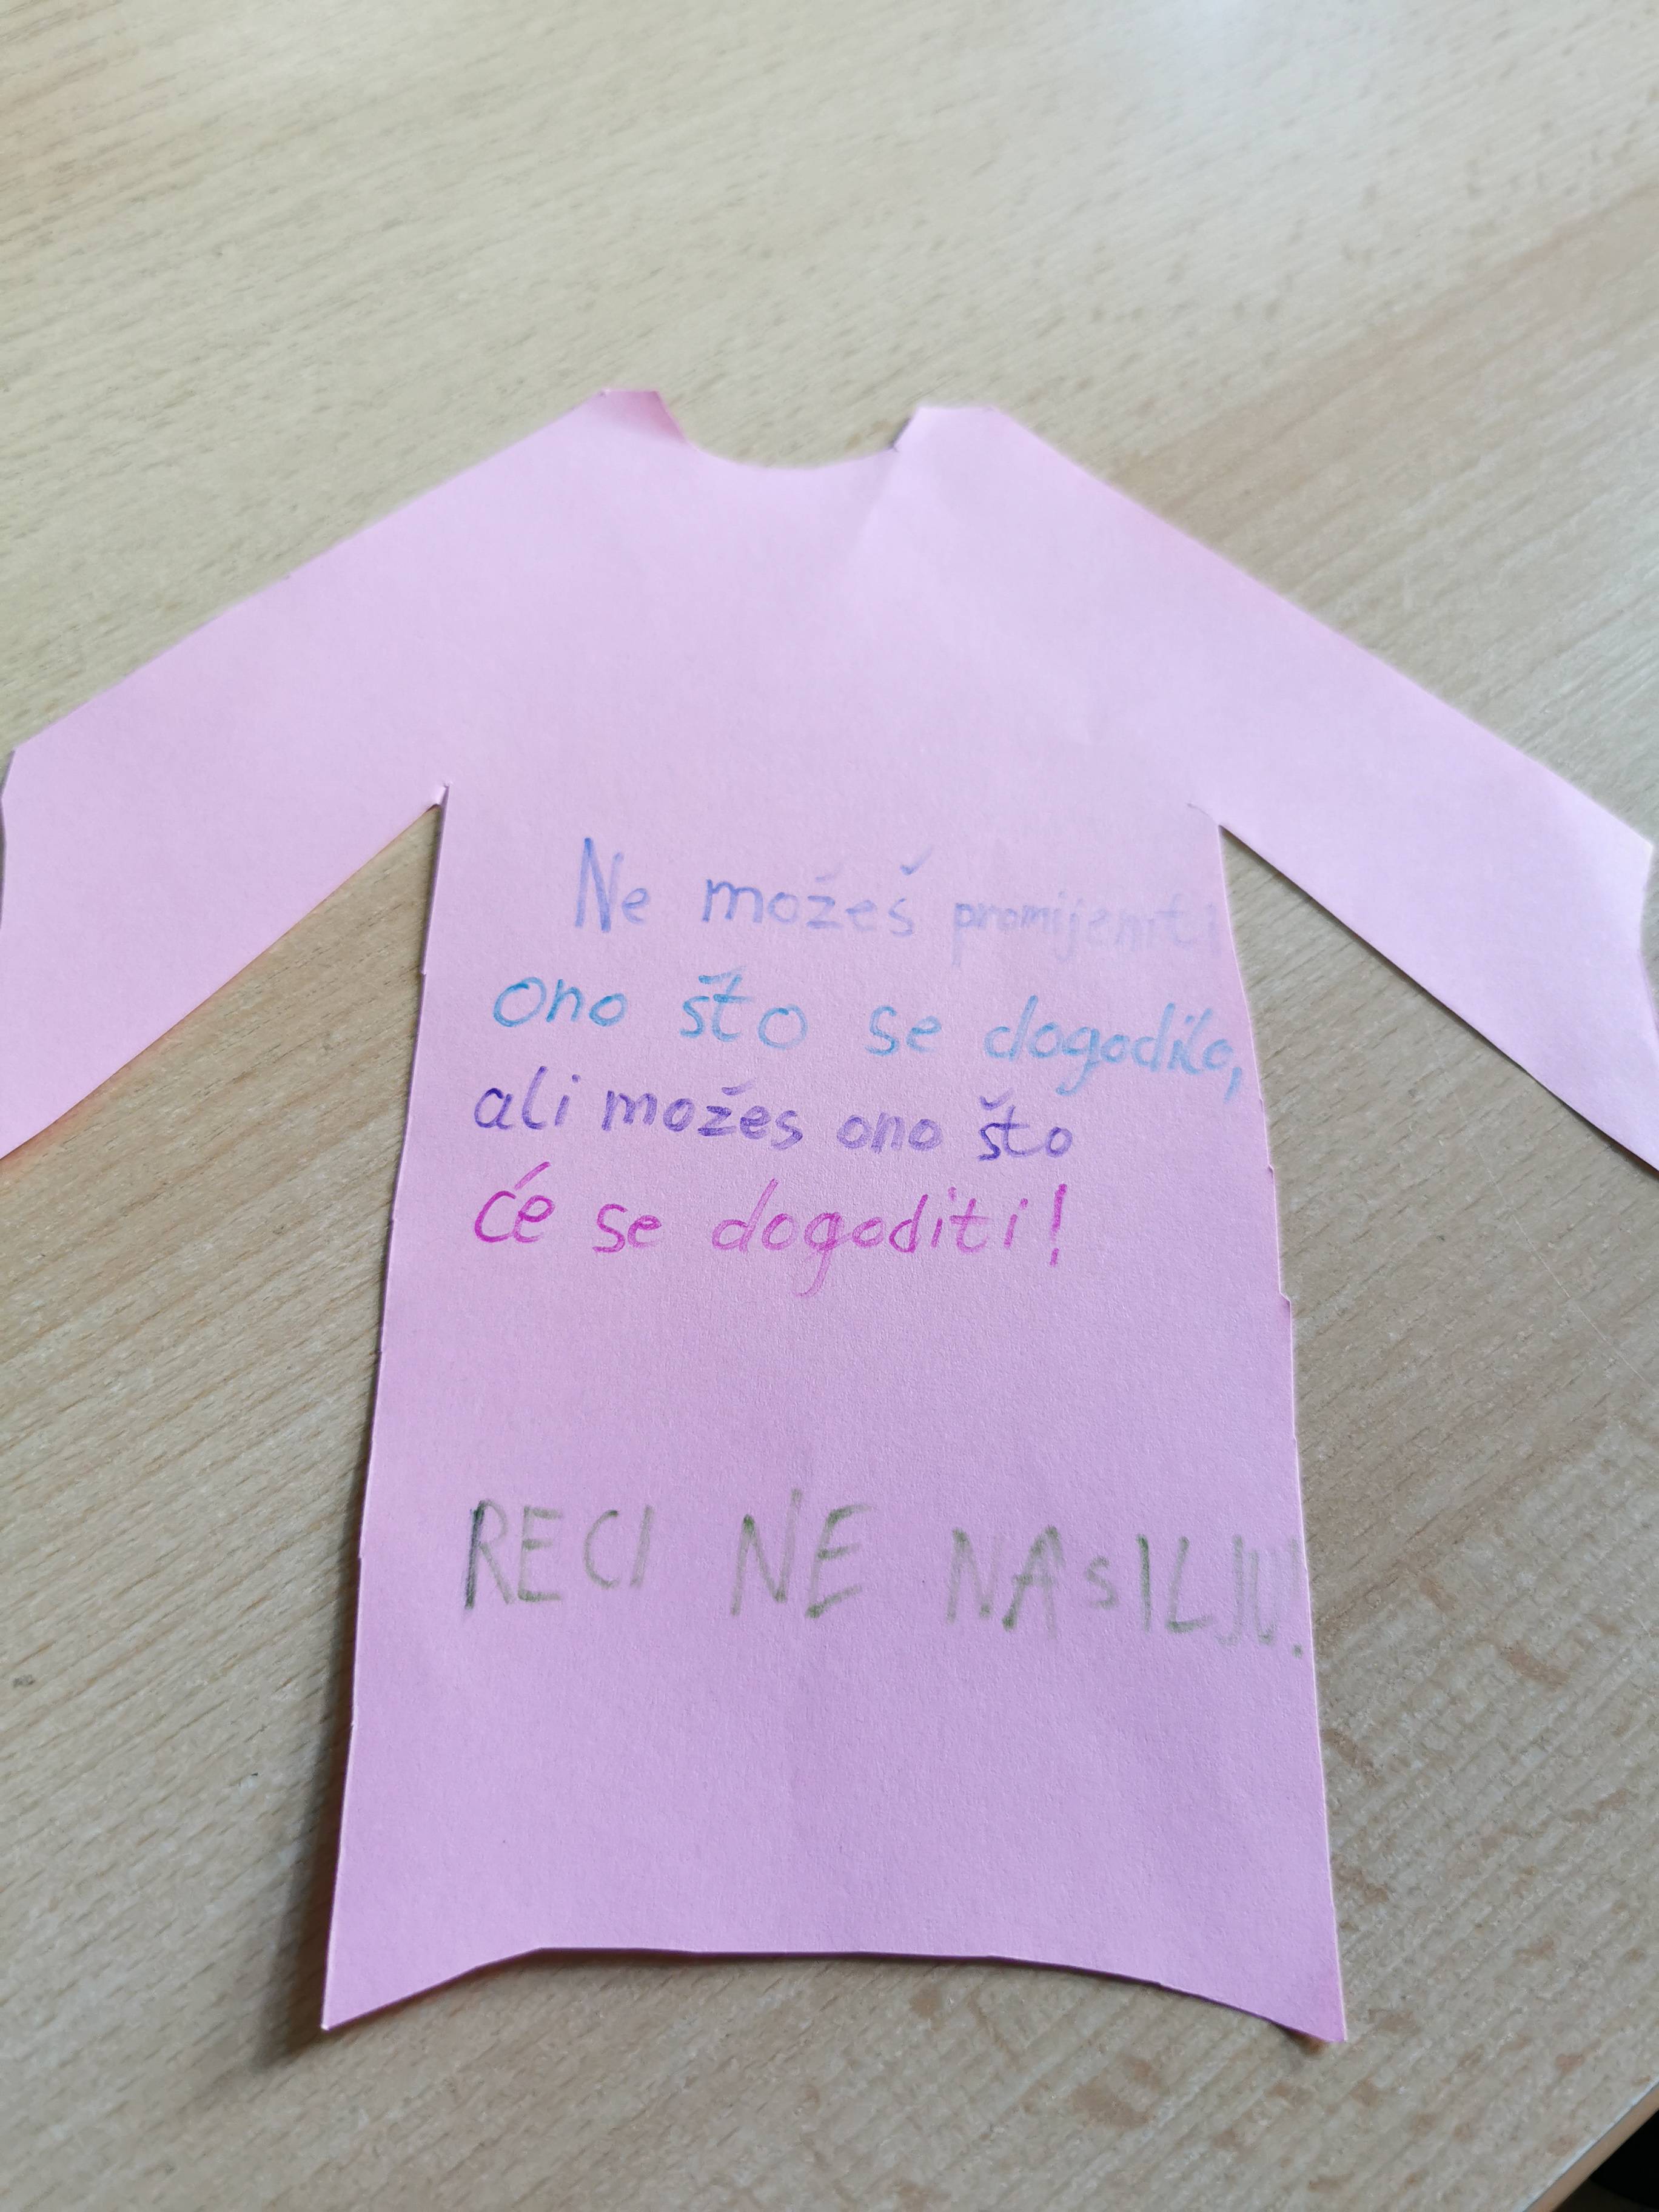 Ne možeš promijeniti
ono što se dogodilo,
ali možes ono što
će se dogoditi!
RECI NE NAsILJU!